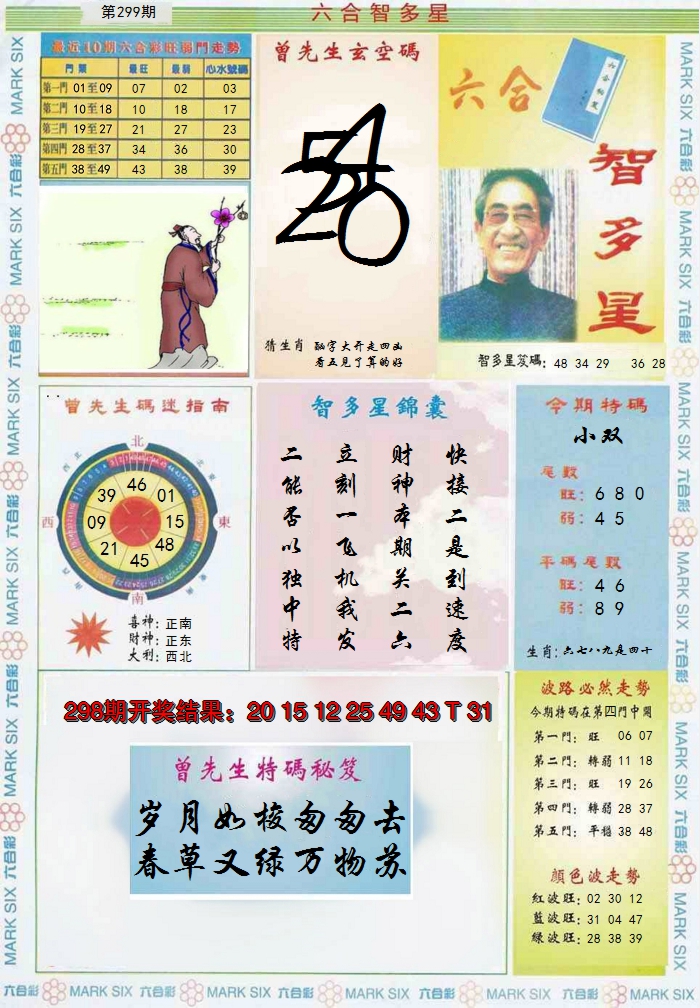 第299期
六合智多星
最近10期六合彩旺弱門走勢
門票 最旺 最弱 心水號碼
第一門 01至09 07 02 03
第二門 10至18 10 18 17
第三門 19至27 21 27 23
第四門 28至37 34 36 30
第五門 38至49 43 38 39
曾先生玄空碼
猜生肖
秘字大开走四凶
看五見了算的好
六合
六合秘笈
智多星
智多星笈碼: 48 34 29 36 28
曾先生碼迷指南
北
46
01
15
48
45
21
09
39
西
東
南
喜神: 正南
財神: 正东
大利: 西北
智多星錦囊
快接二是到速度
财神本期关二六
立刻一飞机我发
二能否以独中特
今期特碼
小双
尾數
旺: 6 8 0
弱: 4 5
平碼尾數
旺: 4 6
弱: 8 9
生肖: 六七八九是四十
298期开奖结果: 20 15 12 25 49 43 T 31
曾先生特碼秘笈
岁月如梭匆匆去
春草又绿万物苏
波路必然走勢
今期特碼在第四門中開
第一門: 旺 06 07
第二門: 轉弱 11 18
第三門: 旺 19 26
第四門: 轉弱 28 37
第五門: 平穩 38 48
顔色波走勢
紅波旺: 02 30 12
藍波旺: 31 04 47
綠波旺: 28 38 39
六合彩 MARK SIX 六合彩 MARK SIX 六合彩 MARK SIX 六合彩 MARK SIX 六合彩